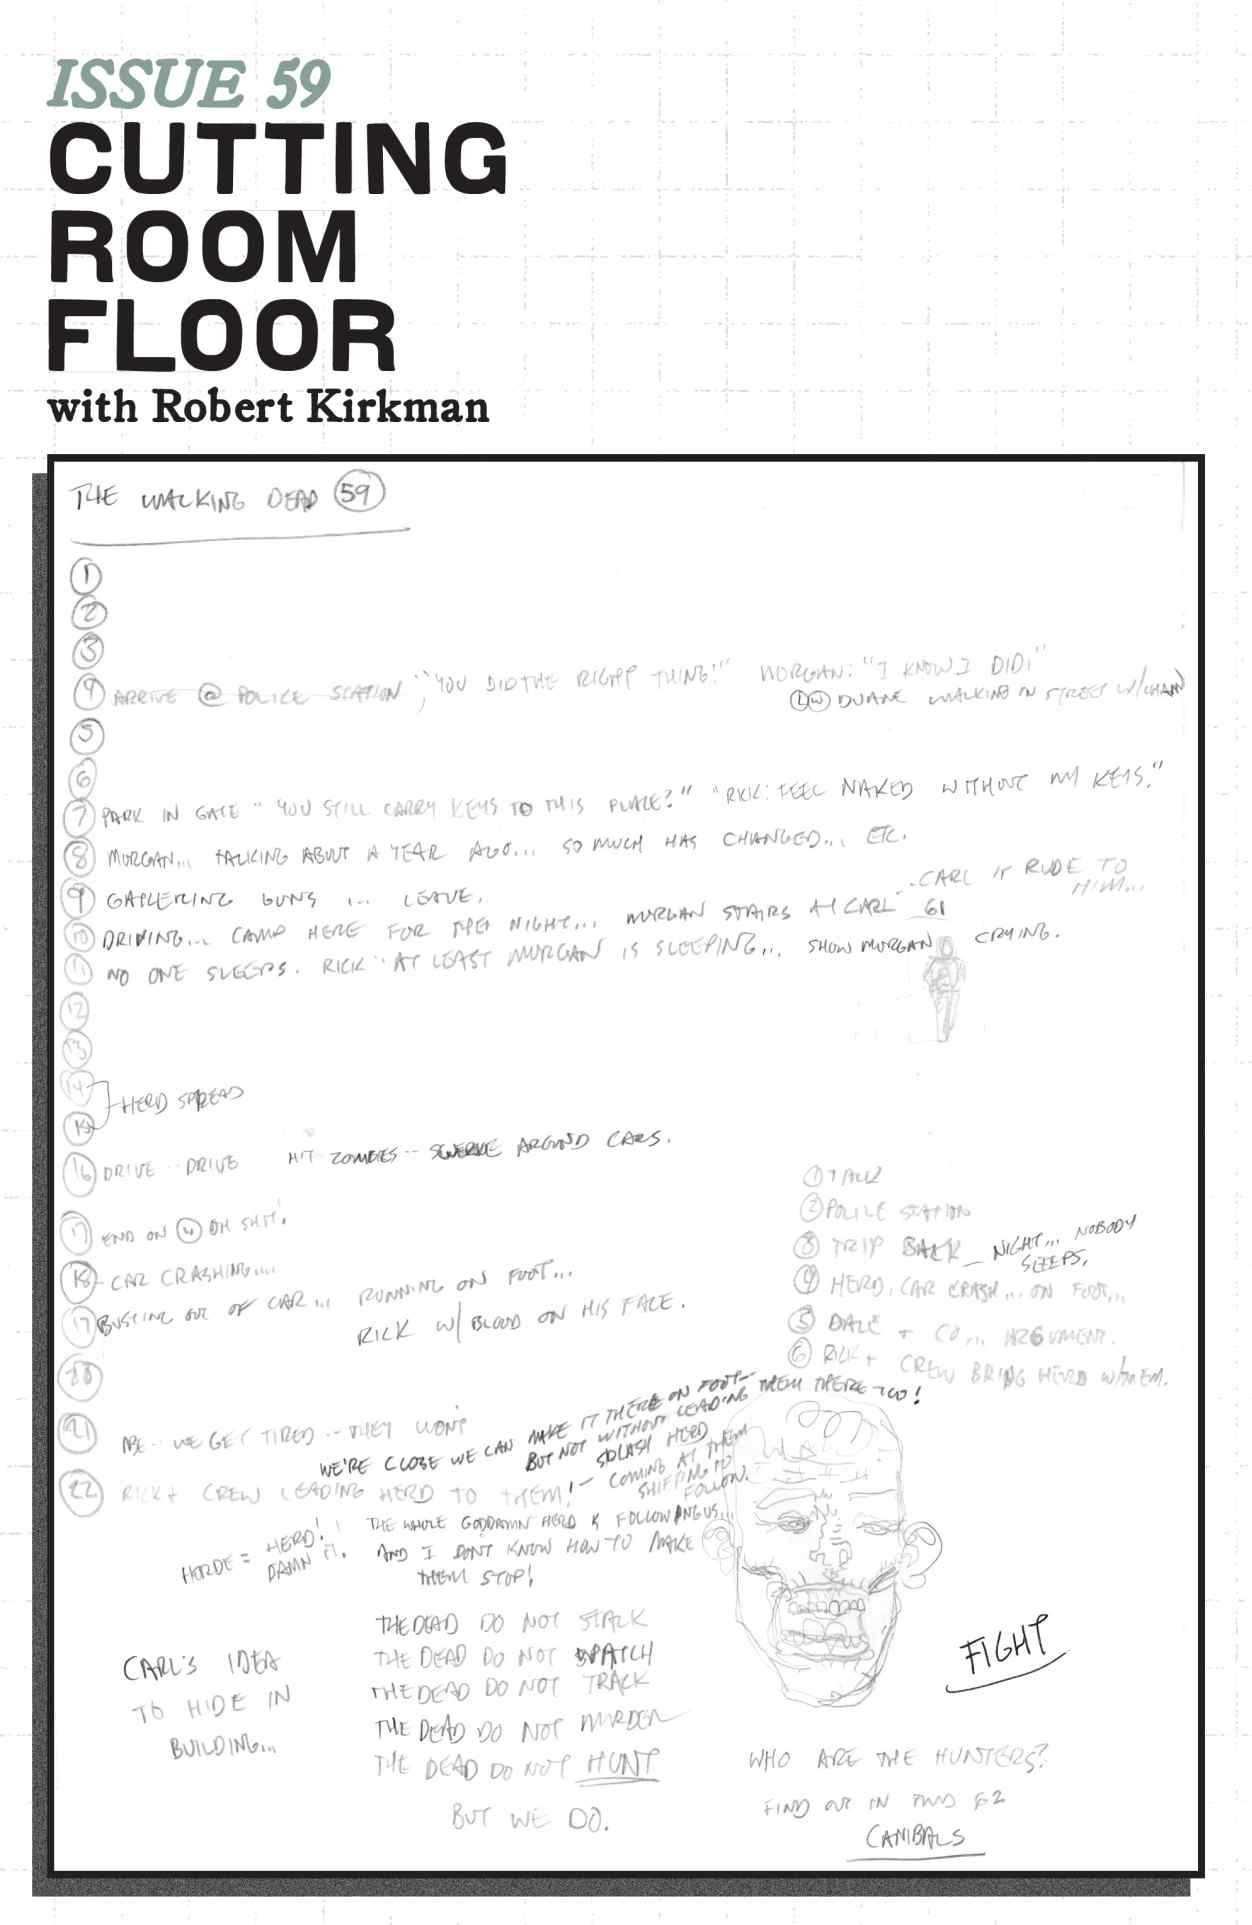 ISSUE 59
CUTTING
ROOM
FLOOR
with Robert Kirkman
THE WALKING DEAD 59
1
2
3
4 ARRIVE @ POLICE STATION "YOU DID THE RIGHT THING!" MORGAN: "I KNOW I DID!"
DUANE WALKING IN STREET W/CHAIN
5
6
7 PARK IN GATE "YOU STILL CARRY KEYS TO THIS PLACE?" "RICK: FEEL NAKED WITHOUT MY KEYS."
8 MORGAN... TALKING ABOUT A YEAR AGO... SO MUCH HAS CHANGED... ETC.
9 GATHERING GUNS ... LEAVE.
..CARL IS RUDE TO
HIM...
10 DRIVING... CAMP HERE FOR THE NIGHT... MORGAN STAIRS AT CARL 61
11 NO ONE SLEEPS. RICK "AT LEAST MORGAN IS SLEEPING... SHOW MORGAN CRYING.
12
13
14
15 HERD SPREAD
16 DRIVE.. DRIVE HIT ZOMBIES.. SWERVE AROUND CARS.
17 END ON 4 OH SHIT!
18 - CAR CRASHING....
19 BUSTING OUT OF CAR... RUNNING ON FOOT...
RICK W/ BLOOD ON HIS FACE.
20
1 TALK
2 POLICE STATION
3 TRIP BACK - NIGHT... NOBODY
SLEEPS.
4 HERD, CAR CRASH... ON FOOT...
5 DALE + CO... ARGUMENT.
6 RICK + CREW BRING HERD W/THEM.
21 ABE.. WE GET TIRED.. THEY WON'T
WE'RE CLOSE WE CAN MAKE IT THERE ON FOOT-
BUT NOT WITHOUT LEADING THEM THERE TOO!
22 RICK + CREW LEADING HERD TO THEM! -
SPLASH HERD
COMING AT THEM
SHIFTING TO
FOLLOW.
HORDE = HERD!
DAMN IT.
THE WHOLE GODDAMN HERD IS FOLLOWING US...
AND I DON'T KNOW HOW TO MAKE
THEM STOP!
CARL'S IDEA
TO HIDE IN
BUILDING...
THE DEAD DO NOT STALK
THE DEAD DO NOT WATCH
THE DEAD DO NOT TRACK
THE DEAD DO NOT MURDER
THE DEAD DO NOT HUNT
BUT WE DO.
FIGHT
WHO ARE THE HUNTERS?
FIND OUT IN TWD 62
CANIBALS